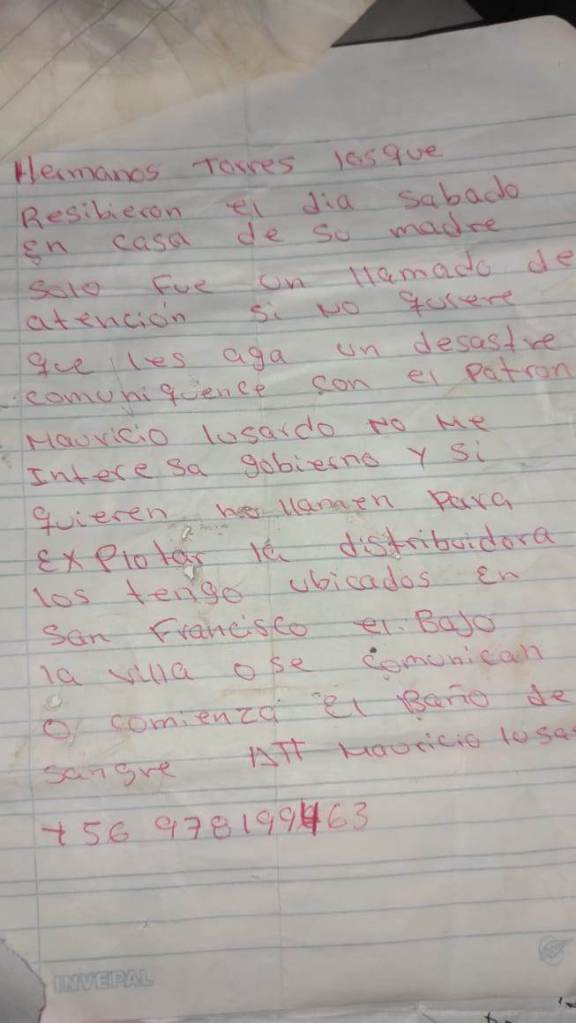 Hermanos Torres losque
Resibieron el dia sabado
en casa de so madre
solo fue un llamado de
atención si no quiere
que les aga un desastre
comuniquence con el Patron
Mauricio lusardo no me
Interesa gobierno y si
quieren no llamen Para
Explotar la distribuidora
los tengo ubicados en
San Francisco el Bajo
la villa o se comunican
o comienza el Baño de
sangre ATT Mauricio lusa
+56 978199463
INVEPAL